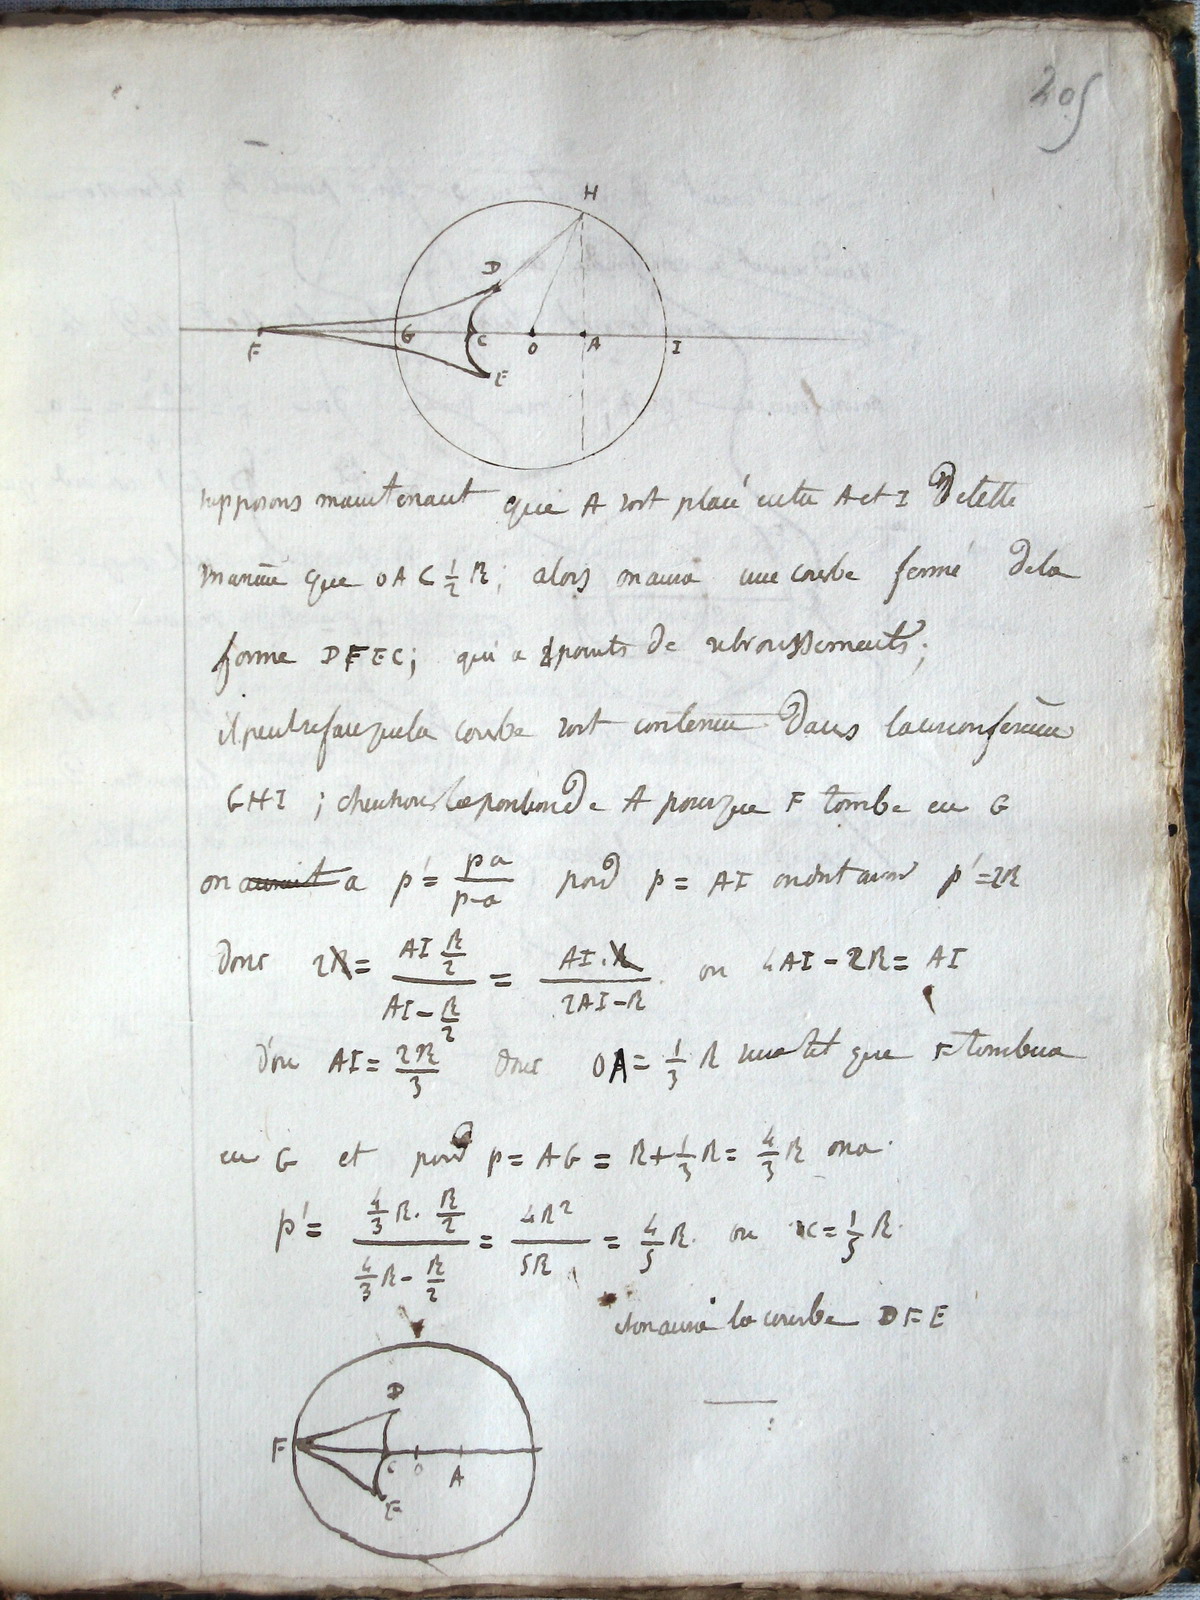 205
H
D
F G C O A I
E
supposons maintenant que A soit placé entre A et I de telle
manière que OA < 1/2 R ; alors on aura une courbe fermé de la
forme DFEC ; qui a 4 points de rebroussements ;
il peut se faire que la courbe soit contenue dans la circonférence
GHI ; cherchons la position de A pour que F tombe en G
on aurait a p' = pa/(p-a) pour p = AI on doit avoir p' = 2R
donc 2R = (AI R/2)/(AI - R/2) = (AI . R)/(2AI - R) ou 4AI - 2R = AI
d'où AI = 2R/3 donc OA = 1/3 R que F tombera
en G et pour p = AG = R + 1/3 R = 4/3 R on a
p' = (4/3 R . R/2)/(4/3 R - R/2) = 4R²/5R = 4/5 R ou = 1/5 R
et on aura la courbe DFE
D
F C O A
E